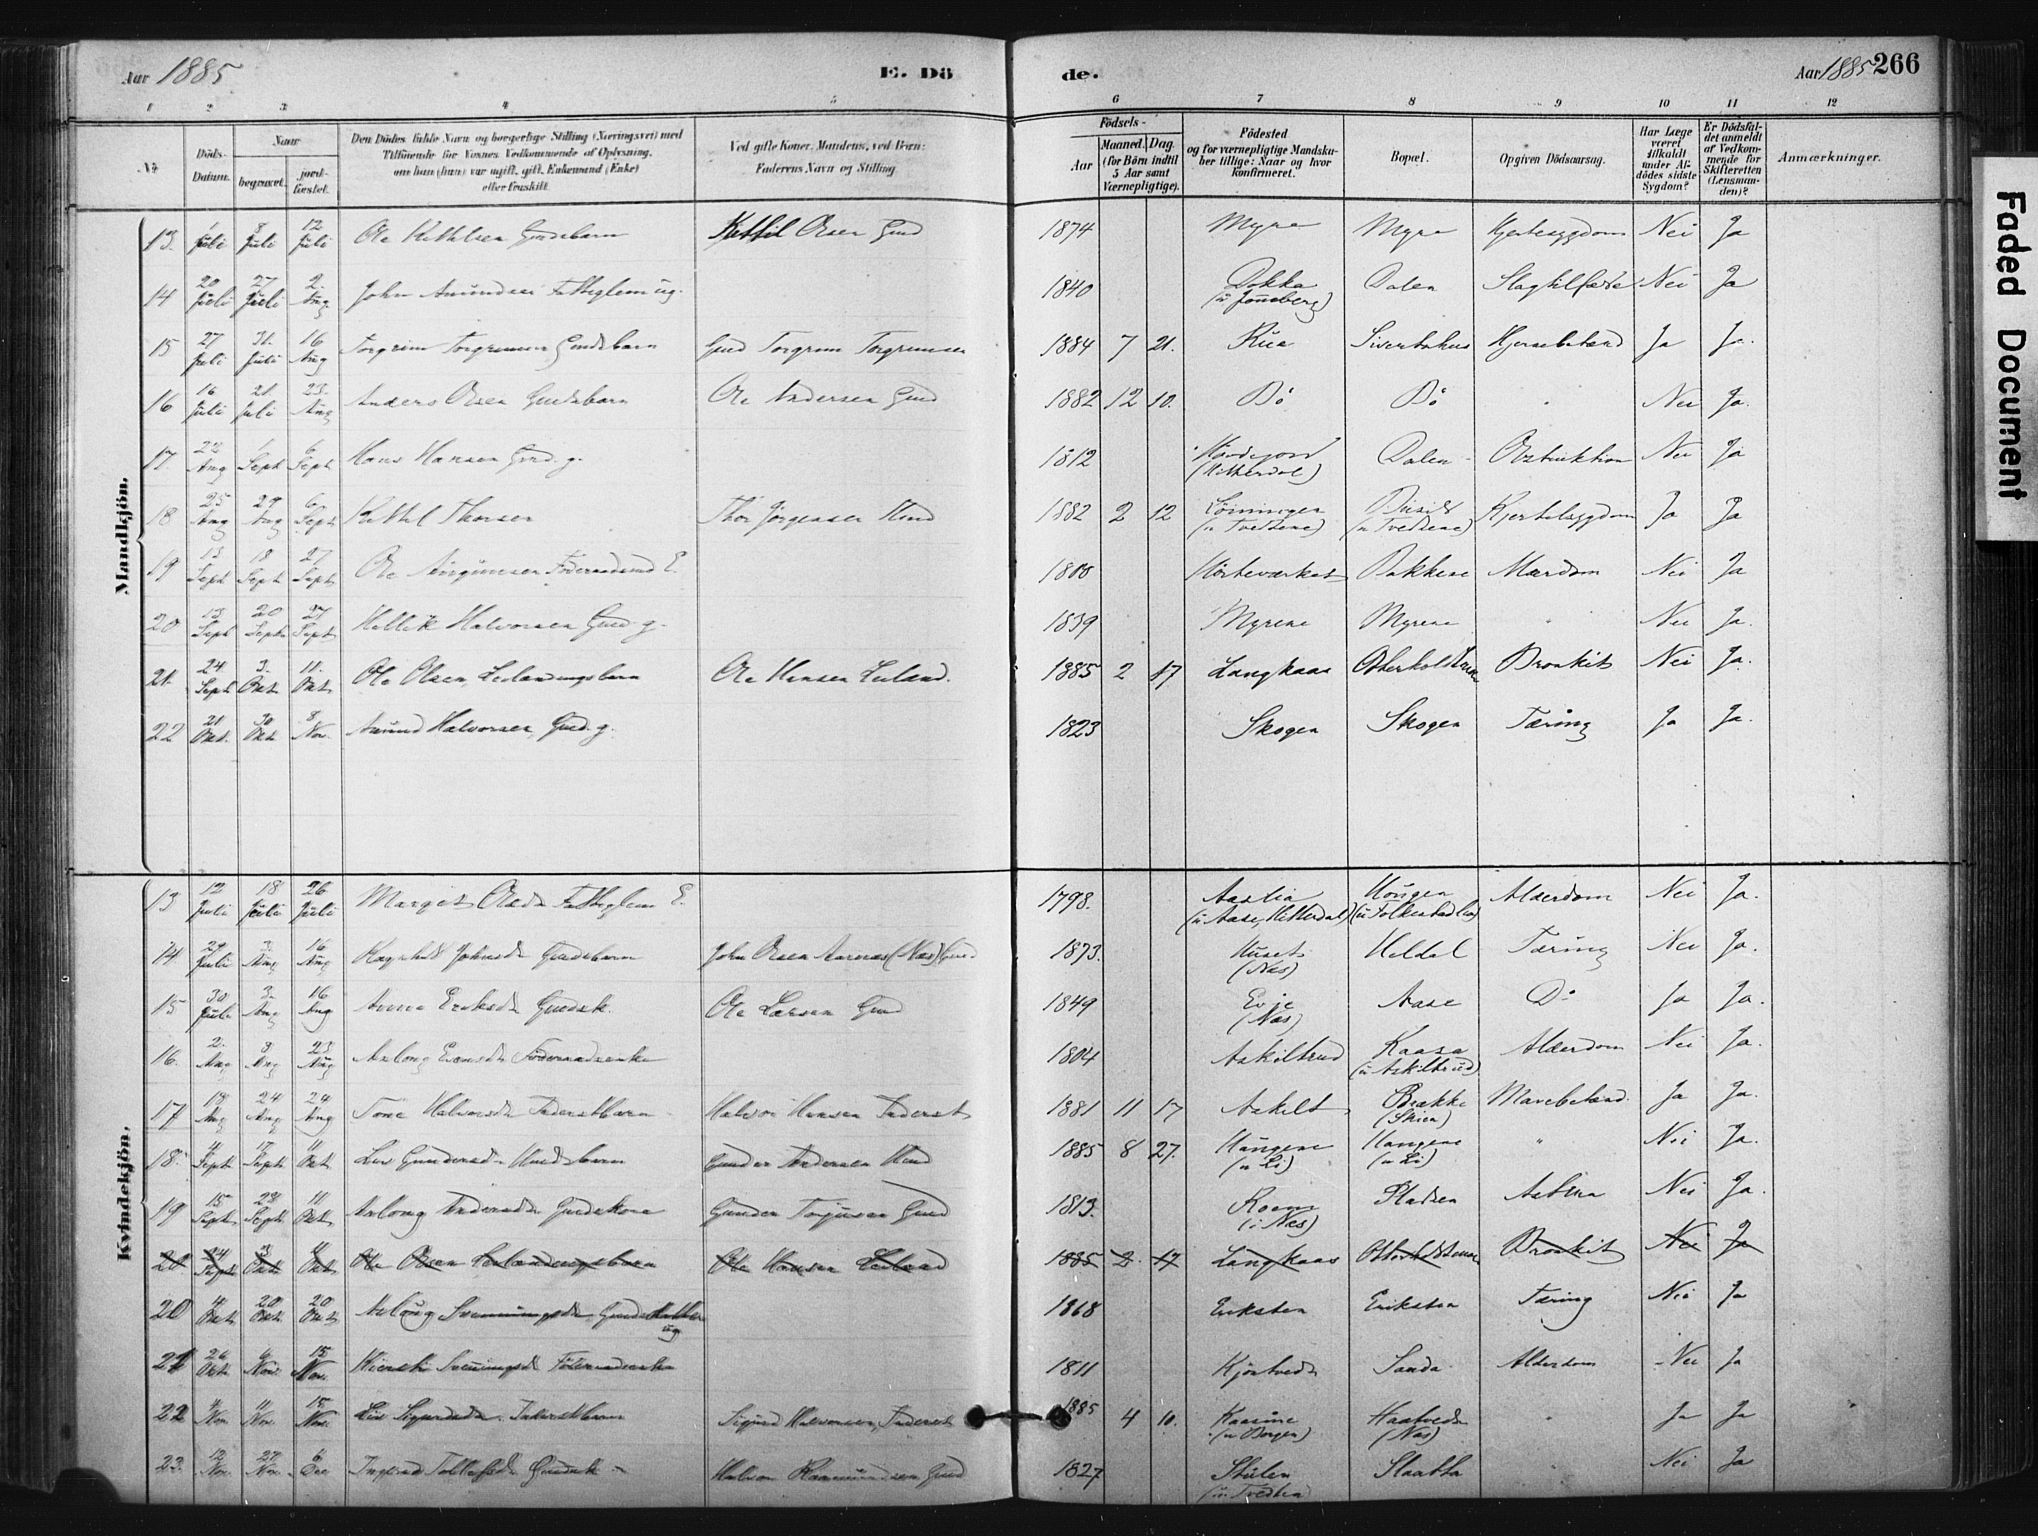 Aar 1885 E. Dö de. Aar 1885 266
1 2 3 4 5 6 7 8 9 10 11 12
No. Döds-Datum. Naar begravet. jordfæstet. Den Dödes fulde Navn og borgerlige Stilling (Næringsvei) med Tilföiende for Voxnes Vedkommende af Oplysning, om han (hun) var ugift, gift, Enkemand (Enke) eller fraskilt. Ved gifte Koner: Mandens, ved Börn: Faderens Navn og Stilling Födsels- Aar Maaned. Dag. (for Börn indtil 5 Aar samt Værnepligtige). Födested og for værnepligtige Mandskaber tillige: Naar og hvor konfirmeret. Bopæl. Opgiven Dödsaarsag. Har Læge været tilkaldt under Afdödes sidste Sygdom? Er Dödsfaldet anmeldt af Vedkommende for Skifteretten (Lensmanden)? Anmærkninger.
Mandkjön.
13. 1 Juli 8 Juli 12 Juli Ole Kittelsen Gmdsbarn Kittil Olsen Gmd 1874 Myra Myra Kjertelsygdom Nei Ja
14 20 Juli 27 Juli 2. Aug John Amundsen Fattiglem ug. 1840 Dokka (u Jønsberg) Dalen Slagtilfælde Nei Ja
15 27 Juli 31. Juli 16 Aug Torgrim Torgrimsen Gmdsbarn Gmd Torgrim Torgrimsen 1884 7 21. Rua Hjernebetænd Ja Ja.
16 16 Juli 21 Juli 23. Aug Anders Olsen Gmdsbarn Ole Andersen Gmd 1882 12 10. Bö Bö " Nei Ja.
17 22 Aug 1 Sept 6 Sept Hans Hansen Gmd. g. 1812 (Hitterdal) Dalen Obstruktion Nei Ja
18 25 Aug 29 Aug 6 Sept Kittel Thorsen Thor Jörgensen Hmd 1882 2 12 (u Tvedtene) (u Tvedtene) Kjertelsygdom Ja Ja
19 13 Sept 18 Sept 27 Sept Ole Föderaadsmd E. 1800 Bakkene Marasm Nei Ja
20 13 Sept 20 Sept 27 Sept Hellik Halvorsen Gmd g. 1839 Myrene Myrene " Nei Ja.
21. 24. Sept 3. Okt 11. Okt. Ole Olsen, Leilændingsbarn Ole Hansen Leilænd. 1885 2 17 Langkaas Bronkit Nei Ja.
22 21 Okt. 30 Okt. 8 Nov. Amund Halvorsen, Gmd. g. 1823 Skogen Skogen Tæring Ja Ja.
Kvindekjön.
13 12 Juli 18 Juli 26 Juli Margit Olsdr Fattiglem E. 1798. Aaslia (u Aase, Hitterdal) Haugen Alderdom Nei Ja.
14 29 Juli 3. Aug 16 Aug Ragnhild Johnsdr Gmdsbarn John Olsen Aarnæs (Næs) Gmd 1873. Huset (Næs) Heldal Tæring Nei Ja.
15 30 Juli 3. Aug 16 Aug Anne Eriksdr Gmdsk. Ole Larsen Gmd 1849 Evje (Næs) Aase Do Ja Ja.
16. 2. Aug 3 Aug 23 Aug Aslaug Evensdr Föderaadsenke 1804 Askiltrud Kaasa (u Askiltrud) Alderdom Nei Ja.
17 18 Aug 24 Aug 24 Aug Tone Halvorsdr Inderstbarn Halvor Hansen Inderst 1881 11 17 Askilt Brekke (Skien) Mavebetænd. Ja Ja.
18. 4 Sept 17 Sept 11 Okt Liv Gundersdr Hmdsbarn Gunder Andersen Hmd 1885 8 27. Haugene (u Li) Haugene (u Li) " Nei Ja.
19 15 Sept 23 Sept 11 Okt Aslaug Andersdr Gmdskone Gunder Torjusen Gmd 1813. (i Næs) Pladsen Nei Ja.
20 24 Sept 3 Okt 11 Okt Ole Olsen Leilændingsbarn Ole Hansen Leilænd 1885 2 17 Langkaas Bronkit Nei Ja
20 4 Okt. 20 Okt. 20 Okt Aslaug Svenningsdr Gmdsdatter ug 1868 Eriksten Eriksten Tæring Nei Ja
21 26 Okt 6 Nov. 15 Nov. Kiersti Svenningsdr Föderaadsenke 1811 Kjöstvedt Sanda Alderdom Nei Ja
22 4 Nov. 11 Nov. 15 Nov. Liv Sigurdsdr. Inderstbarn Sigurd Halvorsen, Inderst 1885 4 10. Kaasine (u Borgen) Haatvedt (Næs) " Ja Ja
23. 12 Nov. 27 Nov. 6 Dec Ingerid Tollefsdr Gmdsk Halvor Gmd 1827 Stulen (u Tvedten) Slaatta Nei Ja
Faded Document